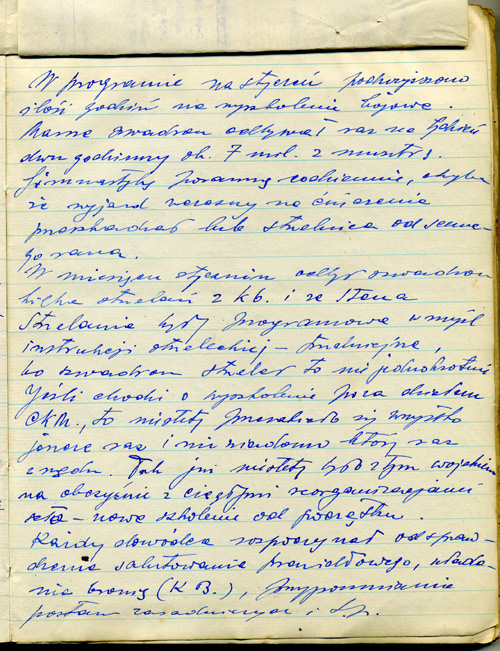 W programie na styczeń podwyższono
ilość godzin na wyszkolenie bojowe.
Marsz szwadron odbywał raz na tydzień
dwu godzinny ok. 7 mil. z musztrą.
Gimnastykę poranną codziennie, chyba
że wyjazd wczesny na ćwiczenia
przeszkadzał lub strzelnica od same-
go rana.
W miesiącu styczniu odbył szwadron
kilka strzelań z kb. i ze Stena
Strzelania były programowe w myśl
instrukcji strzeleckiej –
bo szwadron strzelał to nie jednokrotnie
Jeśli chodzi o wyszkolenie poza działem
CKM., to niestety przerabiało się wszystko
jeszcze raz i nie wiadomo który raz
z rzędu. Tak już niestety było z tym wojskiem
na obczyźnie z ciągłymi reorganizacjami
– nowe szkolenie od początku.
Każdy dowódca rozpoczynał od spraw-
dzenia salutowania prawidłowego, włada-
nia bronią (K B.), przypominanie
postaw zasadniczych i t.p.